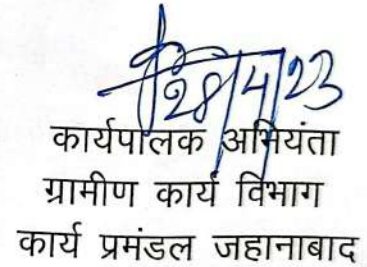 28/4/23
कार्यपालक अभियंता
ग्रामीण कार्य विभाग
कार्य प्रमंडल जहानाबाद